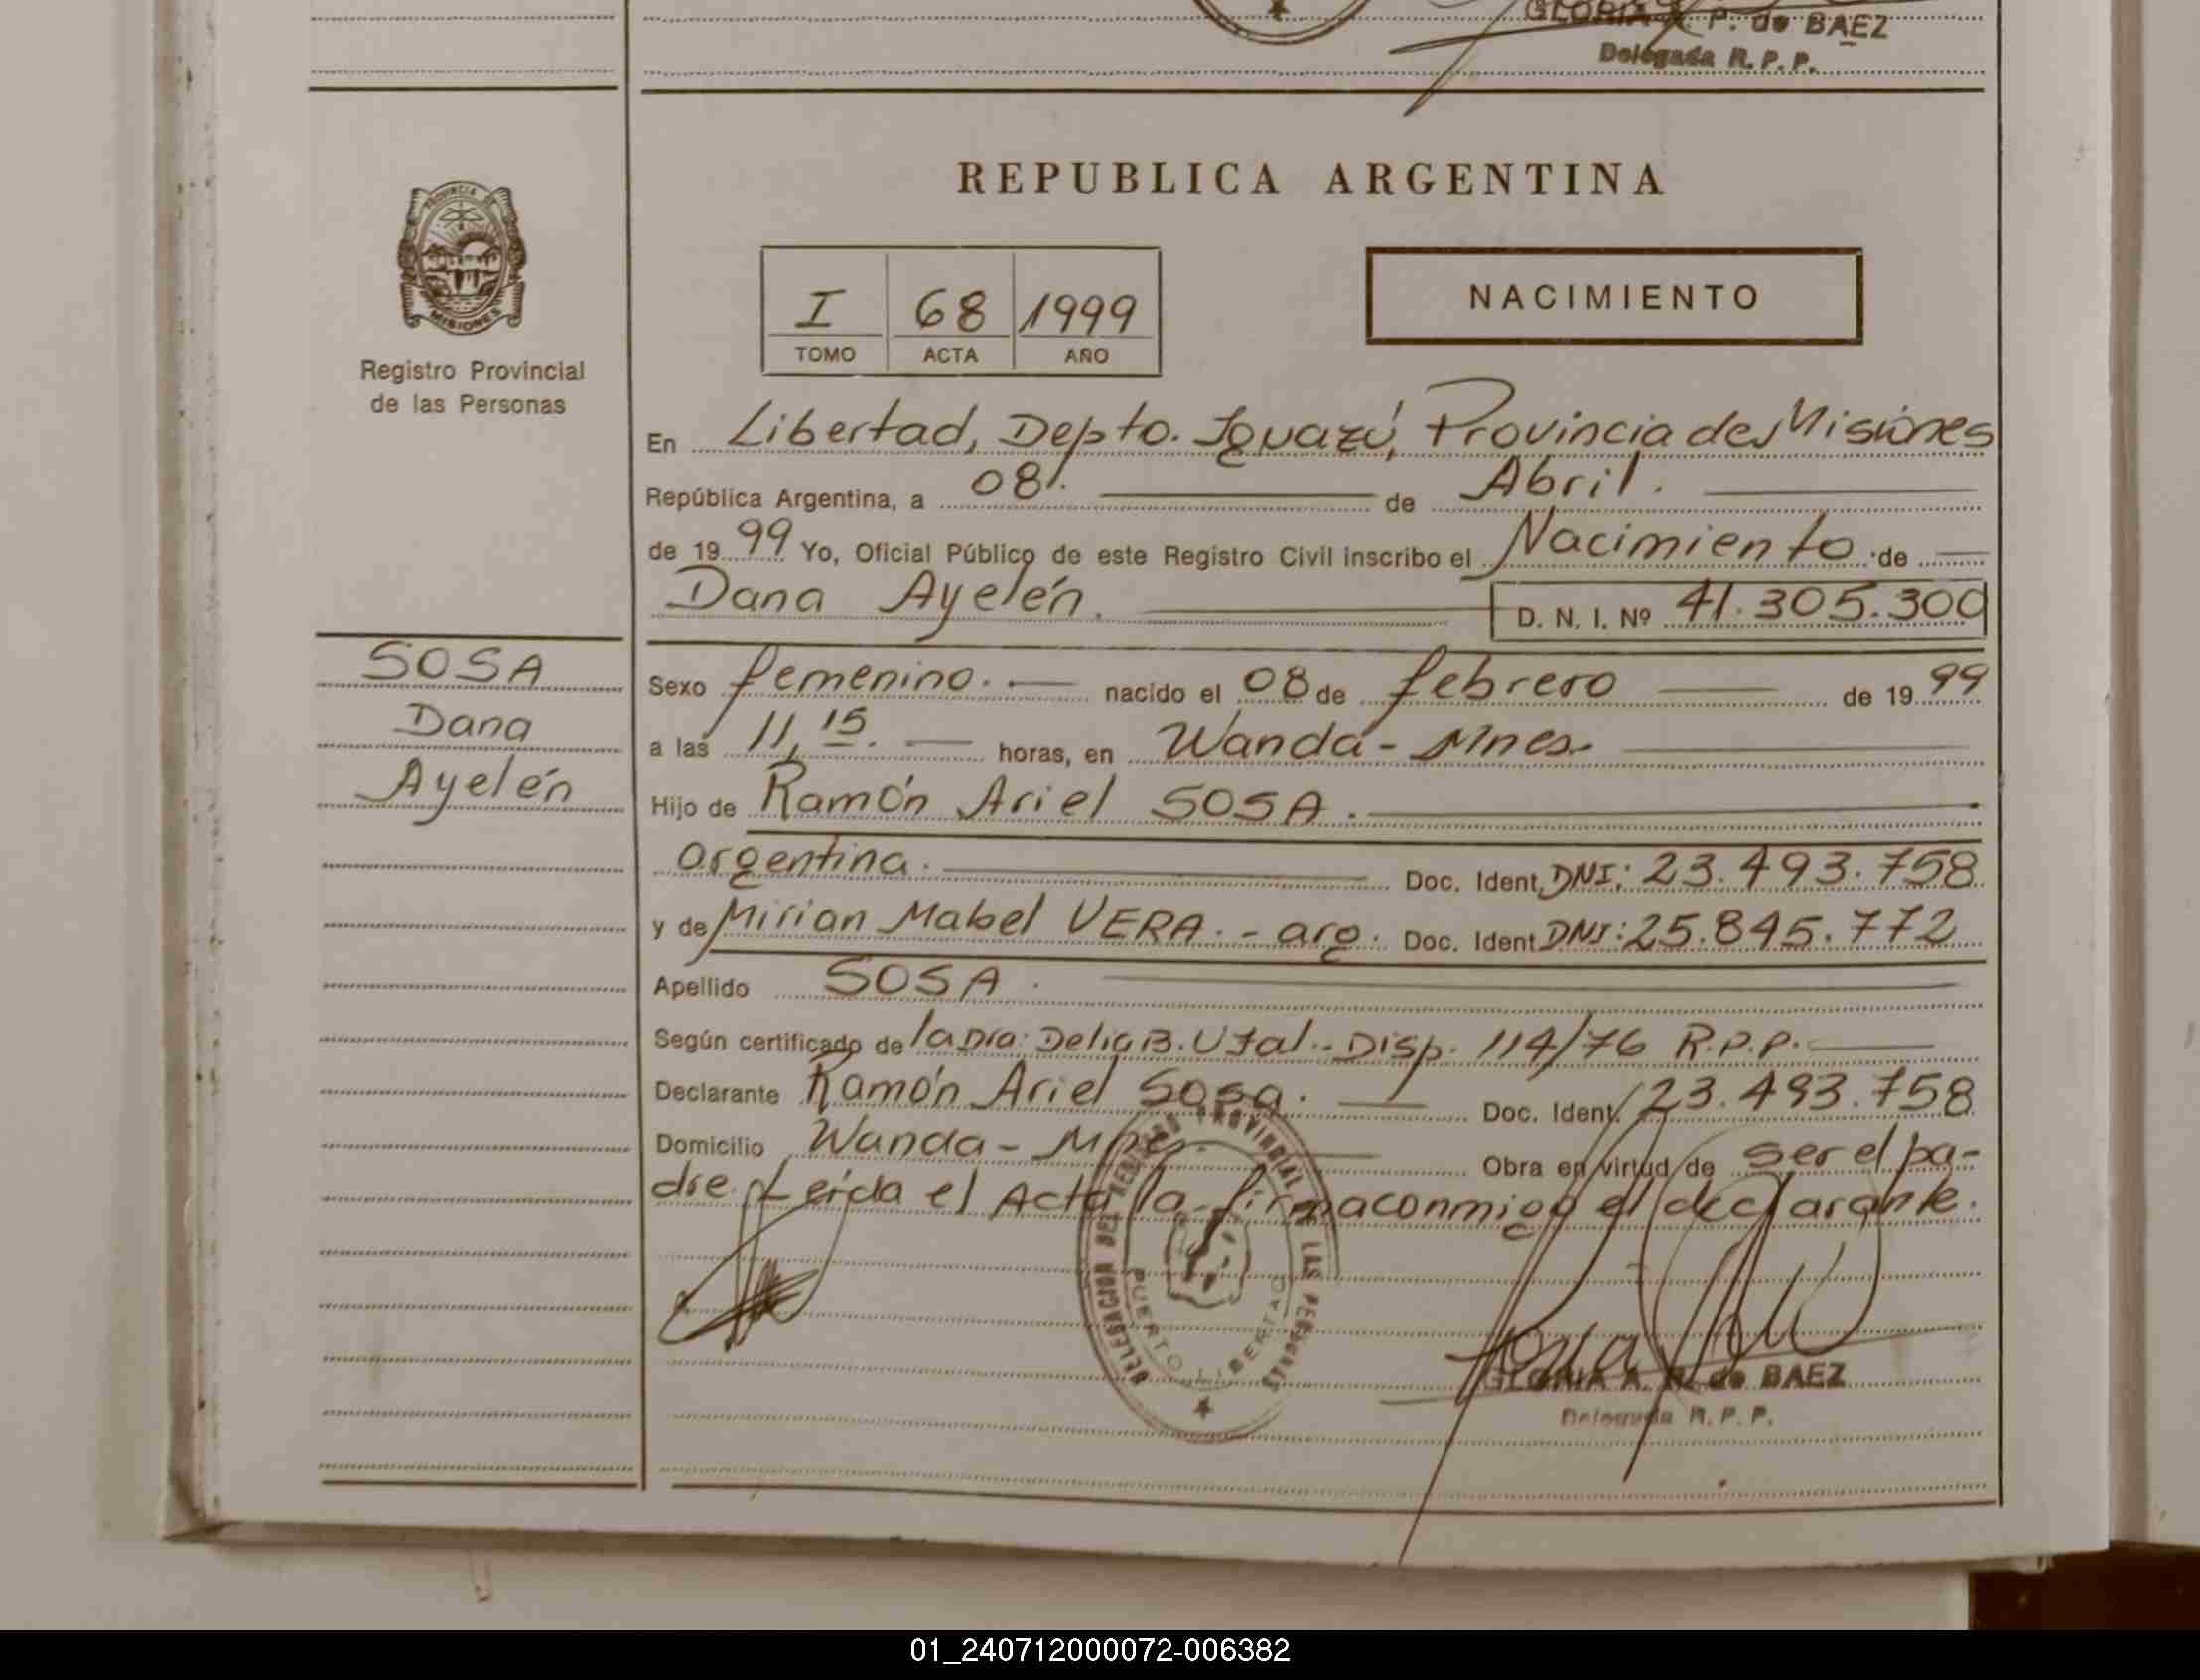 GLORIA A. P. de BAEZ
Delegada R. P. P.
REPUBLICA ARGENTINA
PROVINCIA DE
MISIONES
Registro Provincial
de las Personas
I 68 1999
TOMO ACTA AÑO
NACIMIENTO
En Libertad, Depto. Iguazú, Provincia de Misiones
República Argentina, a 08. de Abril.
de 1999 Yo, Oficial Público de este Registro Civil inscribo el Nacimiento de
Dana Ayelén. D. N. I. Nº 41.305.300
SOSA
Dana
Ayelén
Sexo femenino. nacido el 08 de febrero de 1999
a las 11,15. horas, en Wanda - Mnes.
Hijo de Ramón Ariel SOSA.
argentina. Doc. Ident. DNI: 23.493.758
y de Mirian Mabel VERA. - arg. Doc. Ident DNI: 25.845.772
Apellido SOSA.
Según certificado de la Dra: Delia B. - Disp. 114/76 R.P.P.
Declarante Ramón Ariel Sosa. Doc. Ident. 23.493.758
Domicilio Wanda - Mnes. Obra en virtud de ser el pa-
dre. Leída el Acta la firma conmigo el declarante.
DELEGACION DEL REGISTRO PROVINCIAL DE LAS PERSONAS
PUERTO LIBERTAD
GLORIA A. P. de BAEZ
Delegada R. P. P.
01_240712000072-006382